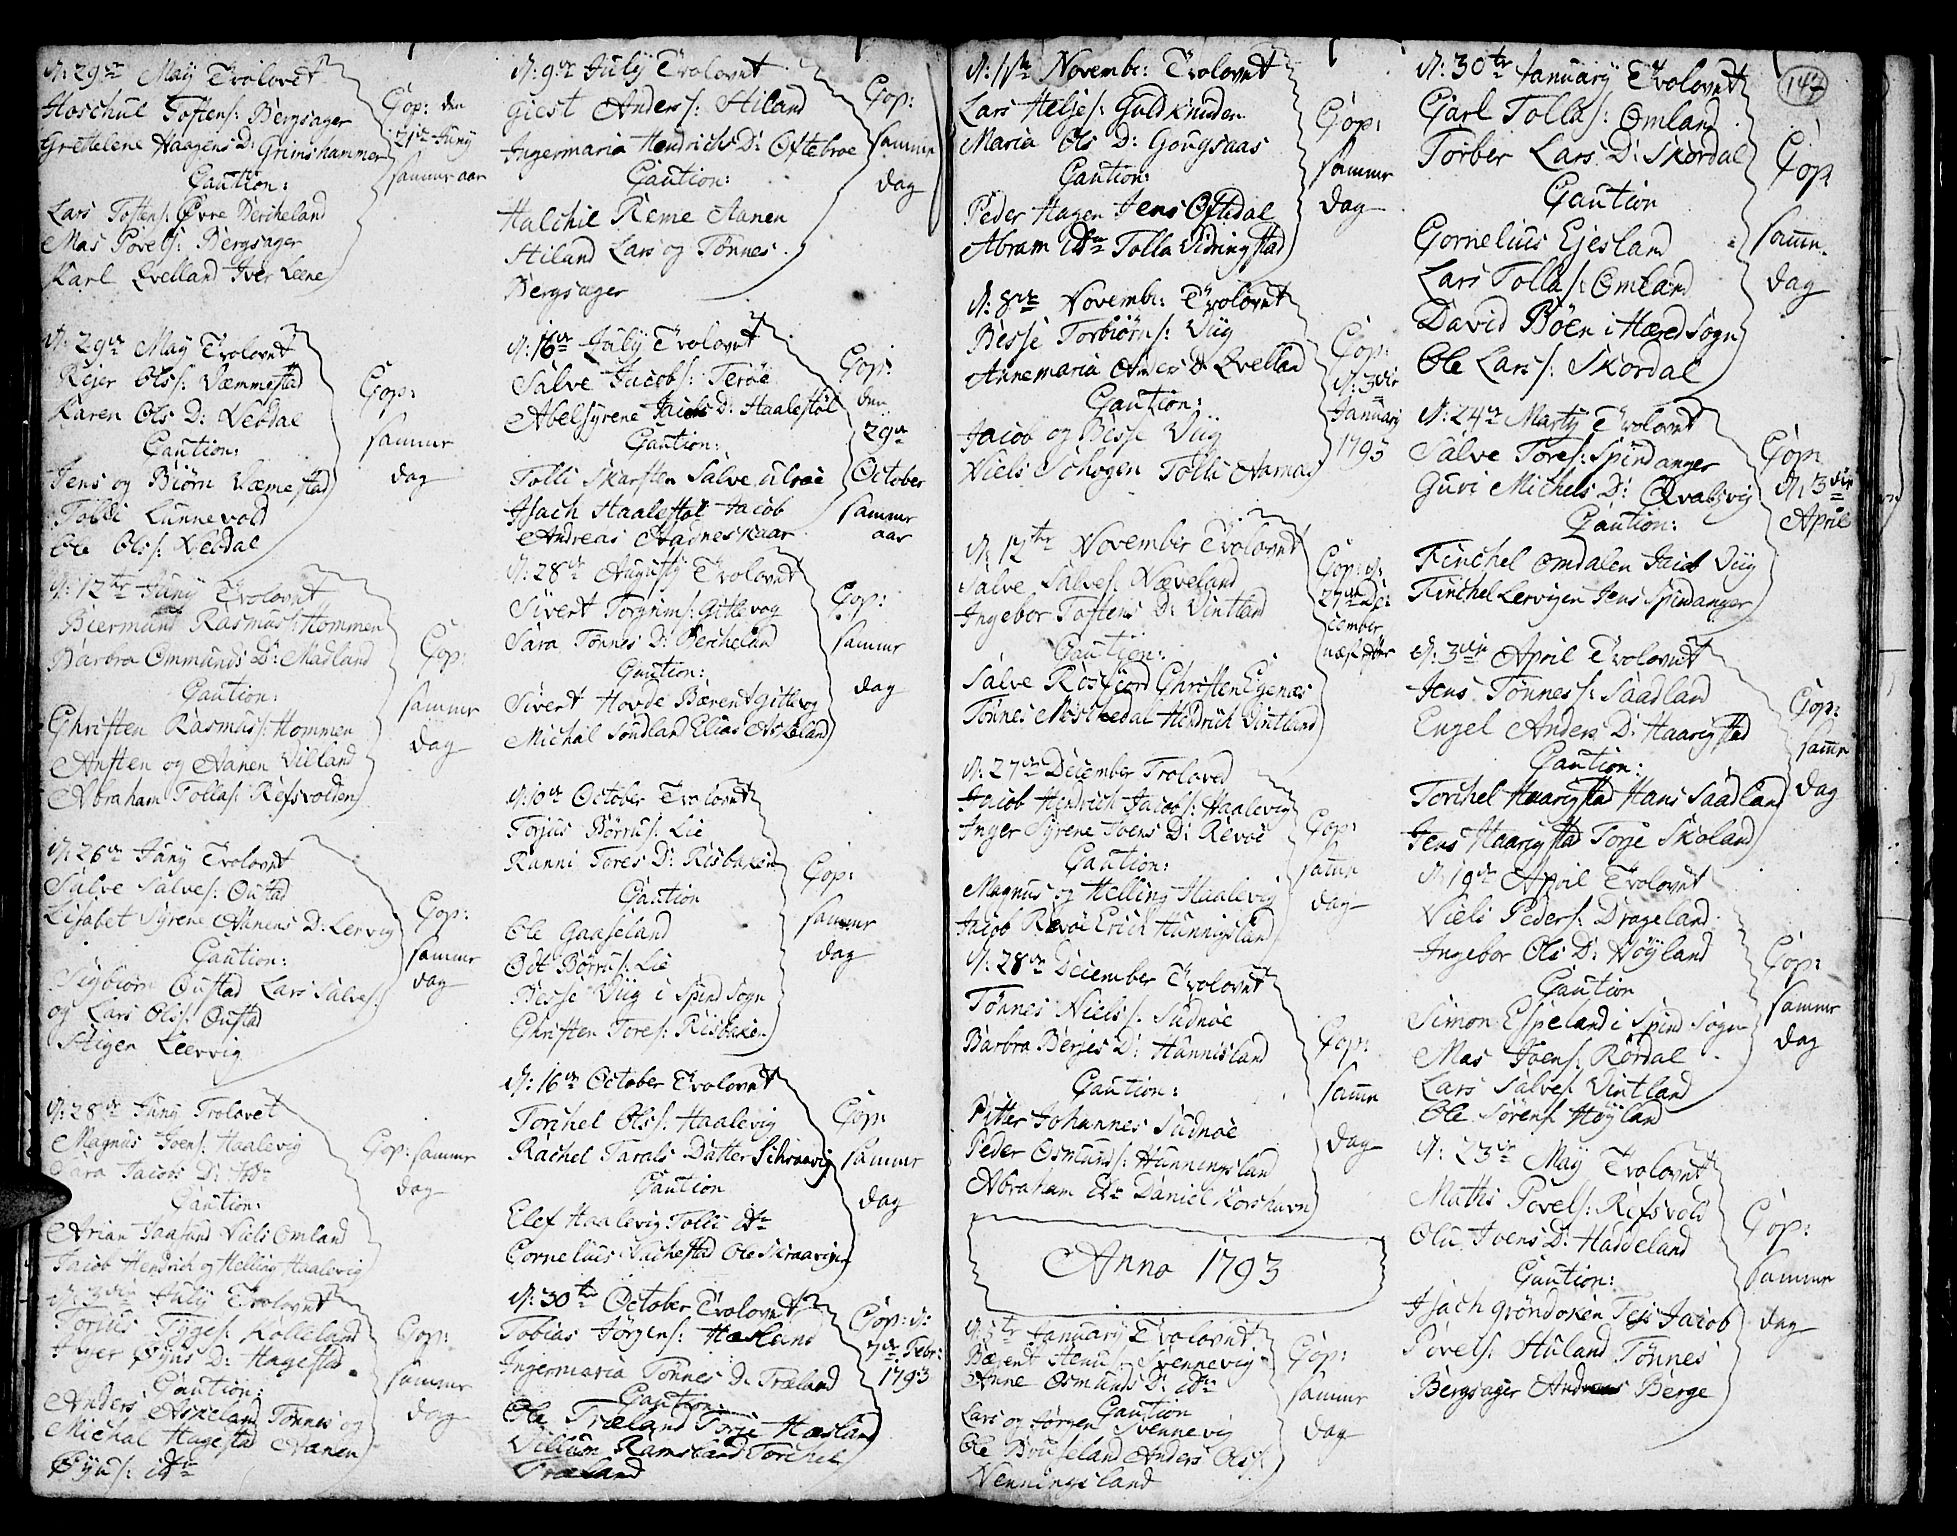 N: 29de May Trolovet
Aaschul Tostens: Bergsager
Grethelene Haagens D: Grimshammer
Caution:
Lars Tostens: Øvre Bercheland
Mas Povels: Bergsager
Karl Qvelland Iver Leene
Cop: den
21de Juny
samme aar
N: 29de May Trolovet
Rejer Ols: Væmmestad
Karen Ols D: Vebdal
Caution:
Jens og Biørn Væmestad
Tolli Lunnevold
Ole Ols: Vebdal
Cop:
samme
dag
N: 12te Juny Trolovet
Biermand Rasmus: Hommen
Barbra Ommunds D: Madland
Caution:
Christen Rasmus: Hommen
Ansten og Aanen Villand
Abraham Tollas: Refsvolden
Cop:
samme
dag
N: 26de Juny Trolovet
Salve Salves: Oustad
Lisabet Syrene Aanens D: Lervig
Caution:
Sigbiørn Oustad Lars Salves:
og Lars Ols: Oustad
Stigen Leervig
Cop:
samme
dag
N: 28de Juny Trolovet
Magnus Joens: Haalevig
Sara Jacobs D: ibm
Caution:
Arian Jaasund Niels Omland
Jacob Hendrich og Helling Haalevig
Cop: samme
dag
N: 3die July Trolovet
Torius Torges: Kolleland
Inger Øyus D: Hagestad
Caution:
Anders Aspeland Tønnes og
Michal Hagestad Aanen
Øyus: ibm
Cop:
samme
dag
N: 9de July Trolovet
Giest Anders: Hiland
Ingermaria Hendrichs D: Oftebroe
Caution:
Halchil Reme Aanen
Hiland Lars og Tønnes
Bergsager
Cop:
samme
dag
N: 16de July Trolovet
Salve Jacobs: Terøe
Abelsyrene Jacobs D: Haalestøl
Caution:
Tolli Skarsten Salve Ulrøe
Isach Haalestøl Jacob
Andreas Aadneskaar
Cop:
den
29de
October
samme
aar
N: 28de Augusty Trolovet
Sivert Torgrims: Gitlevog
Sara Tønnes D: Bercheland
Caution:
Sivert Hovde Bærent Gitlevog
Michal Sundland Elias Askeland
Cop:
samme
dag
N: 10de October Trolovet
Torjus Børrus: Lie
Runni Tores D: Risbaken
Caution
Ole Gaaseland
Odt Børrus: Lie
Besse Viig i Spind Sogn
Christen Tores: Risbaken
Cop:
samme
dag
N: 16de October Trolovet
Torchel Ols: Haalevig
Rachel Tarals Datter Schraavig
Caution
Elef Haalevig Tolli ibm
Cornelius Vachestad Ole Skraavigen
Cop:
samme
dag
N: 30te October Trolovet
Tobias Jørgens: Hæsland
Ingermaria Tønnes D: Træland
Caution:
Ole Træland Torje Hæsland
Villum Ramsland Torchel
Træland
Cop: d:
7de Febr:
1793
N: 1ste Novembr: Trolovet
Lars Heljes: Guldknuden
Maria Ols D: Gougsaas
Caution:
Peder Hagen Jens Oftedal
Abram ibm Tolla Vidringstad
Cop:
samme
dag
N: 8de Novembr: Trolovet
Besse Torbiørns: Viig
Annemaria Anders D: Qvelland
Caution:
Jacob og Besse Viig
Niels Schogen Tolli Aamas
Cop:
N: 3die
Januari
1793
N: 12te November Trolovet
Salve Salves: Næveland
Ingebor Tostens D: Vintland
Caution:
Salve Rosfiord Christen Egenæs
Tønnes Meschedal Hendrich Vintland
Cop: d:
27de De:
cember
næst Aar
N: 27de December Troloved
Jacob Hendrich Jacobs: Haalevig
Inger Syrene Joens D: Revøe
Caution:
Magnus og Helling Haalevig
Jacob Revøe Erich Hunnigsland
Cop:
samme
dag
N: 28de December Trolovet
Tønnes Niels: Sudnøe
Barbra Berjes D: Hunnisland
Caution:
Pitter Johannes Sudnøe
Peder Osmunds: Hunningsland
Abraham ibm Daniel Korshavn
Cop:
samme
dag
Anno 1793
N: 3te January Trolovet
Bærent Henus: Svennevig
Anne Osmunds D: ibm
Caution
Lars og Jørgen Svennevig
Ole Buseland Anders Ols:
Venningsland
Cop:
samme
dag
147
N: 30te January Trolovet
Carl Tollas: Omland
Torber Lars D: Skordal
Caution
Cornelius Ejesland
Lars Tollas: Omland
David Bøen i Hæred Sogn
Ole Lars: Skordal
Cop
samme
dag
N: 24de Marty Trolovet
Salve Tores: Spindanger
Guri Michels D: Qvalsvig
Caution:
Tinchel Omdalen Jacob Viig
Tinchel Lervigen Jens Spindanger
Cop:
N: 3die
April
N: 3die April Trolovet
Jens Tønness: Saadland
Engel Anders D: Haarigstad
Caution:
Torchel Haarigstad Hans Saadland
Jens Haarigstad Torje Skoland
Cop:
samme
dag
N: 19de April Trolovet
Niels Peders: Drageland
Ingebor Ols D: Høyland
Caution
Simon Espeland i Spind Sogn
Mas Joens: Rørdal
Lars Salves: Vintland
Ole Sørens: Høyland
Cop:
samme
dag
N: 23de May Trolovet
Maths Povels: Refsvold
Olu Joens D: Haddeland
Caution:
Isach Grøndoken Jacob
Povels: Huland Tønnes
Bergsager Andreas Berge
Cop:
samme
dag